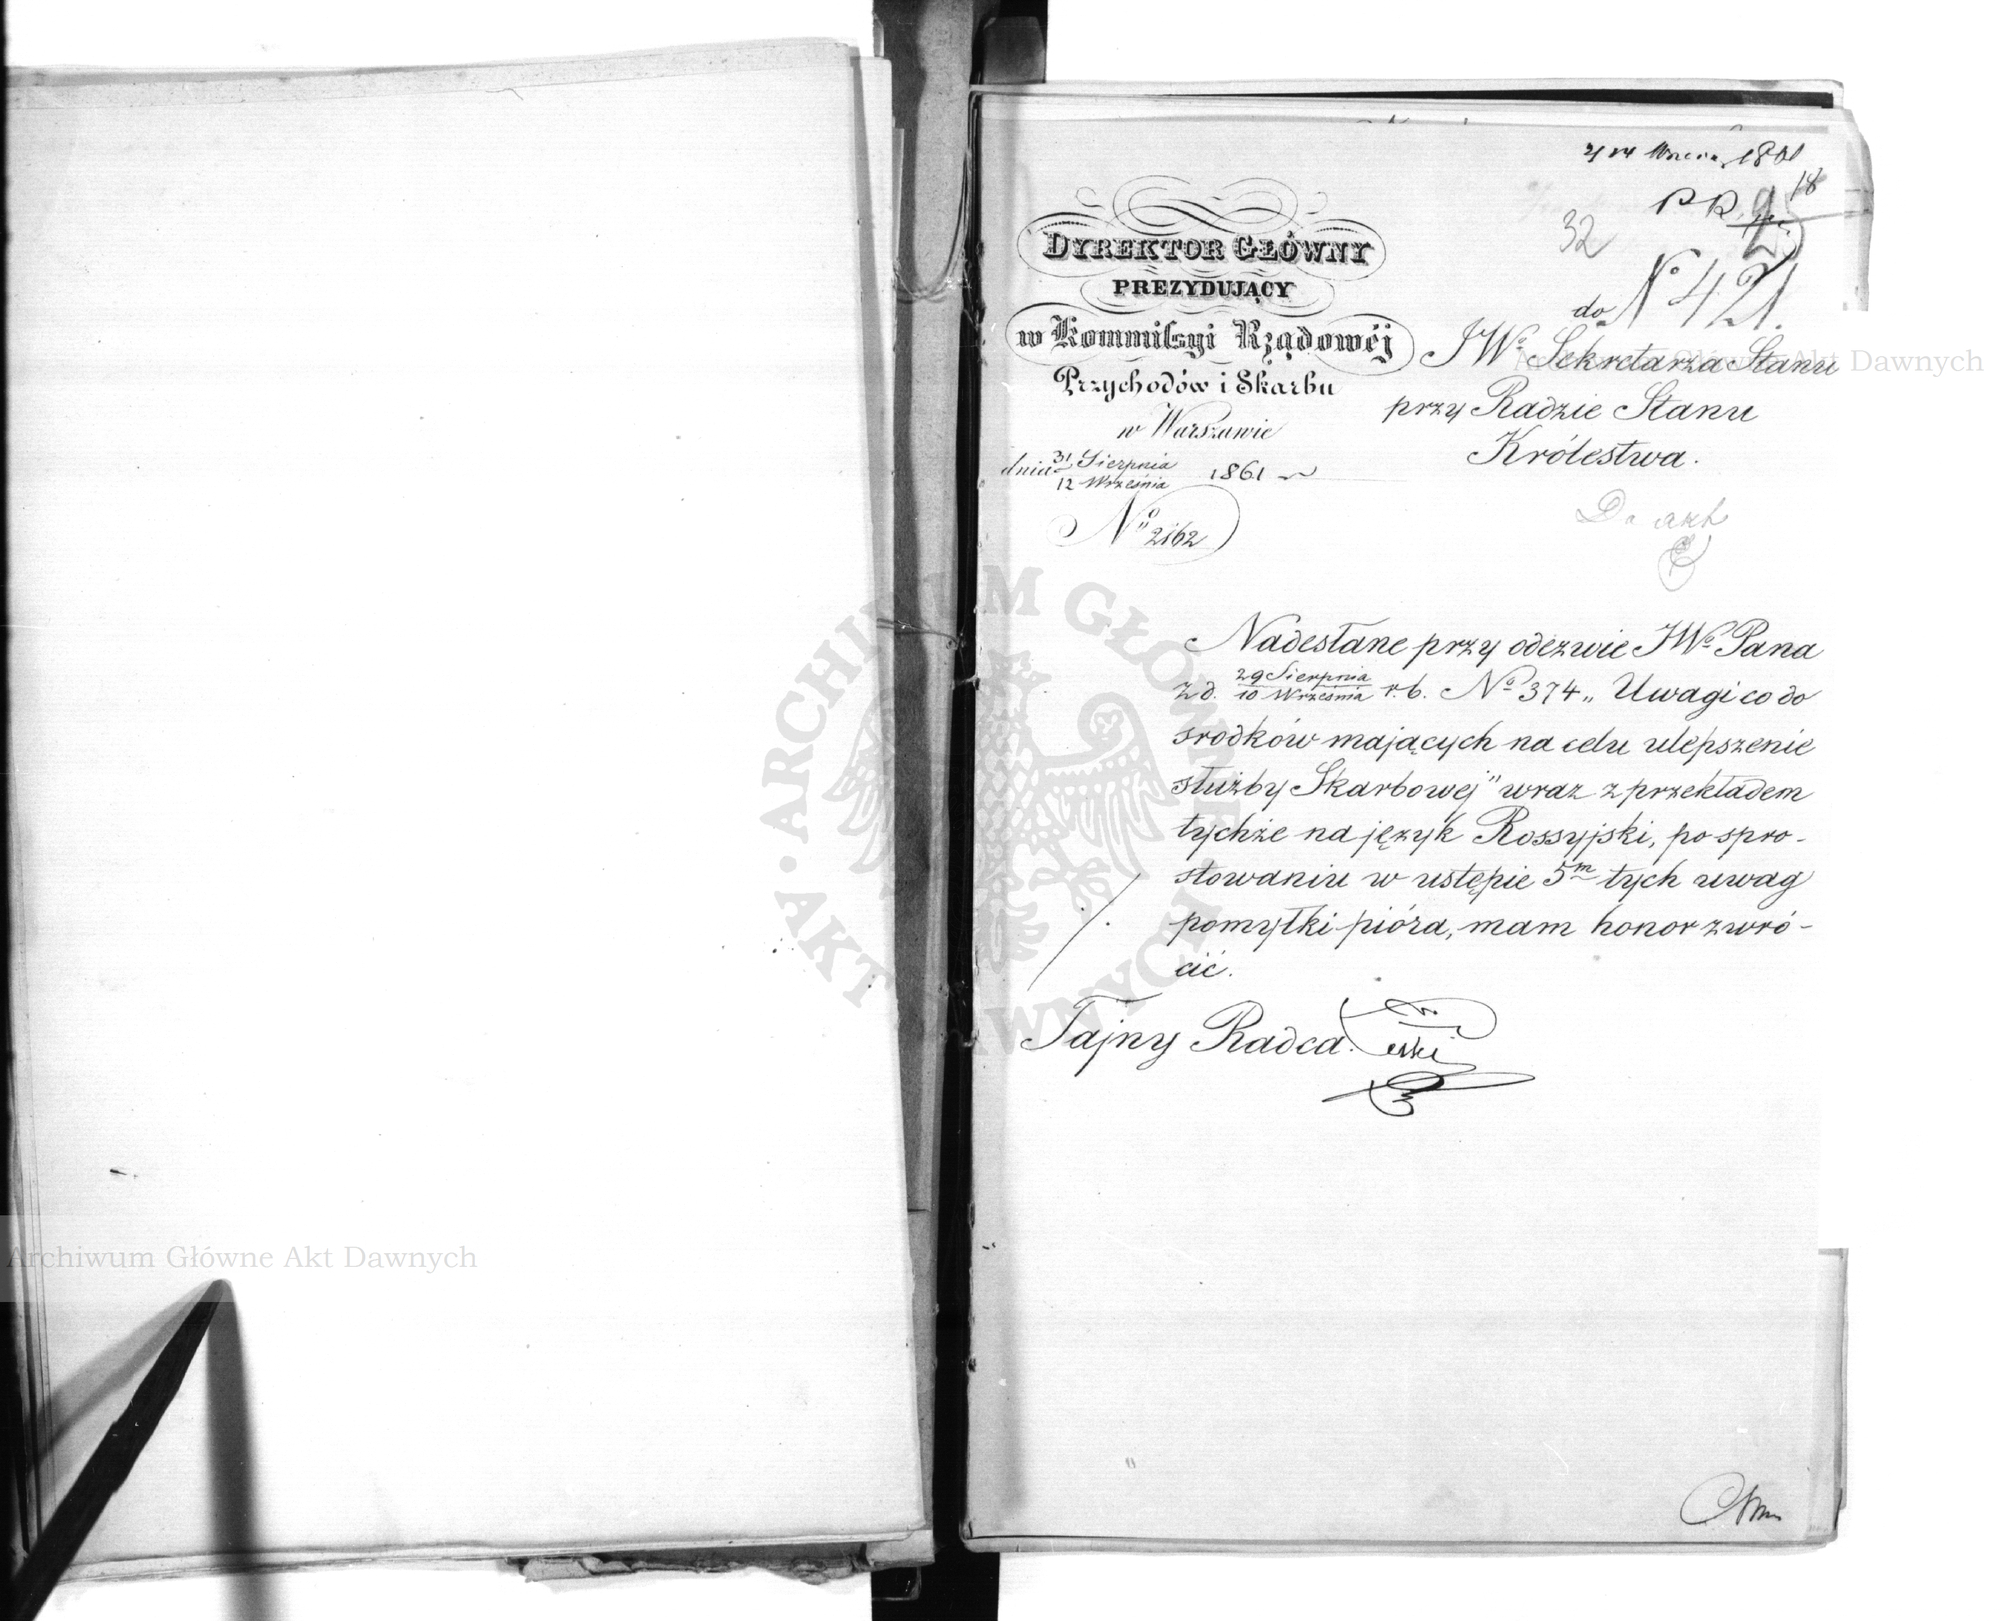 1861
18
32
DYREKTOR GŁÓWNY
PREZYDUJĄCY
w Kommissyi Rządowéj
Przychodów i Skarbu
w Warszawie
dnia 31 Sierpnia / 12 Września 1861
№ 2162
№ 421.
do
JWo Sekretarza Stanu
przy Radzie Stanu
Królestwa.
Do akt
Nadesłane przy odezwie JWo Pana
z d. 29 Sierpnia / 10 Września r. b. № 374 „Uwagi co do
srodków mających na celu ulepszenie
służby Skarbowej" wraz z przekładem
tychże na język Rossyjski, po spro-
stowaniu w ustępie 5m tych uwag
pomyłki pióra, mam honor zwró-
cić.
Tajny Radca
Archiwum Główne Akt Dawnych
Archiwum Główne Akt Dawnych
ARCHIWUM GŁÓWNE · AKT DAWNYCH